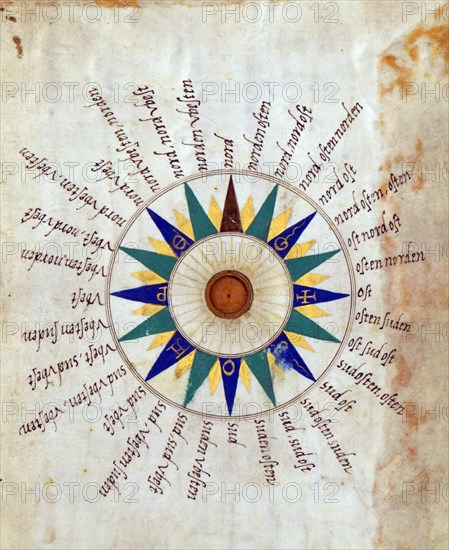 nord
norden osten
nord nord ost
nord osten norden
nord ost
nord osten, osten
ost nord ost
osten norden
ost
osten suden
ost sud ost
sudosten, osten
sud ost
sud osten suden
sud, sud ost
suden osten
sud
suden vbesten
sud sud vbest
sud vbesten suden
sud vbest
sud vbesten, vbesten
vbest, sud vbest
vbesten suden
vbest
vbesten, norden
vbest, nord vbest
nord vbesten, vbesten
nord vbest
nord vbesten norden
nord, nord vbest
norden vbesten
PHOTO12